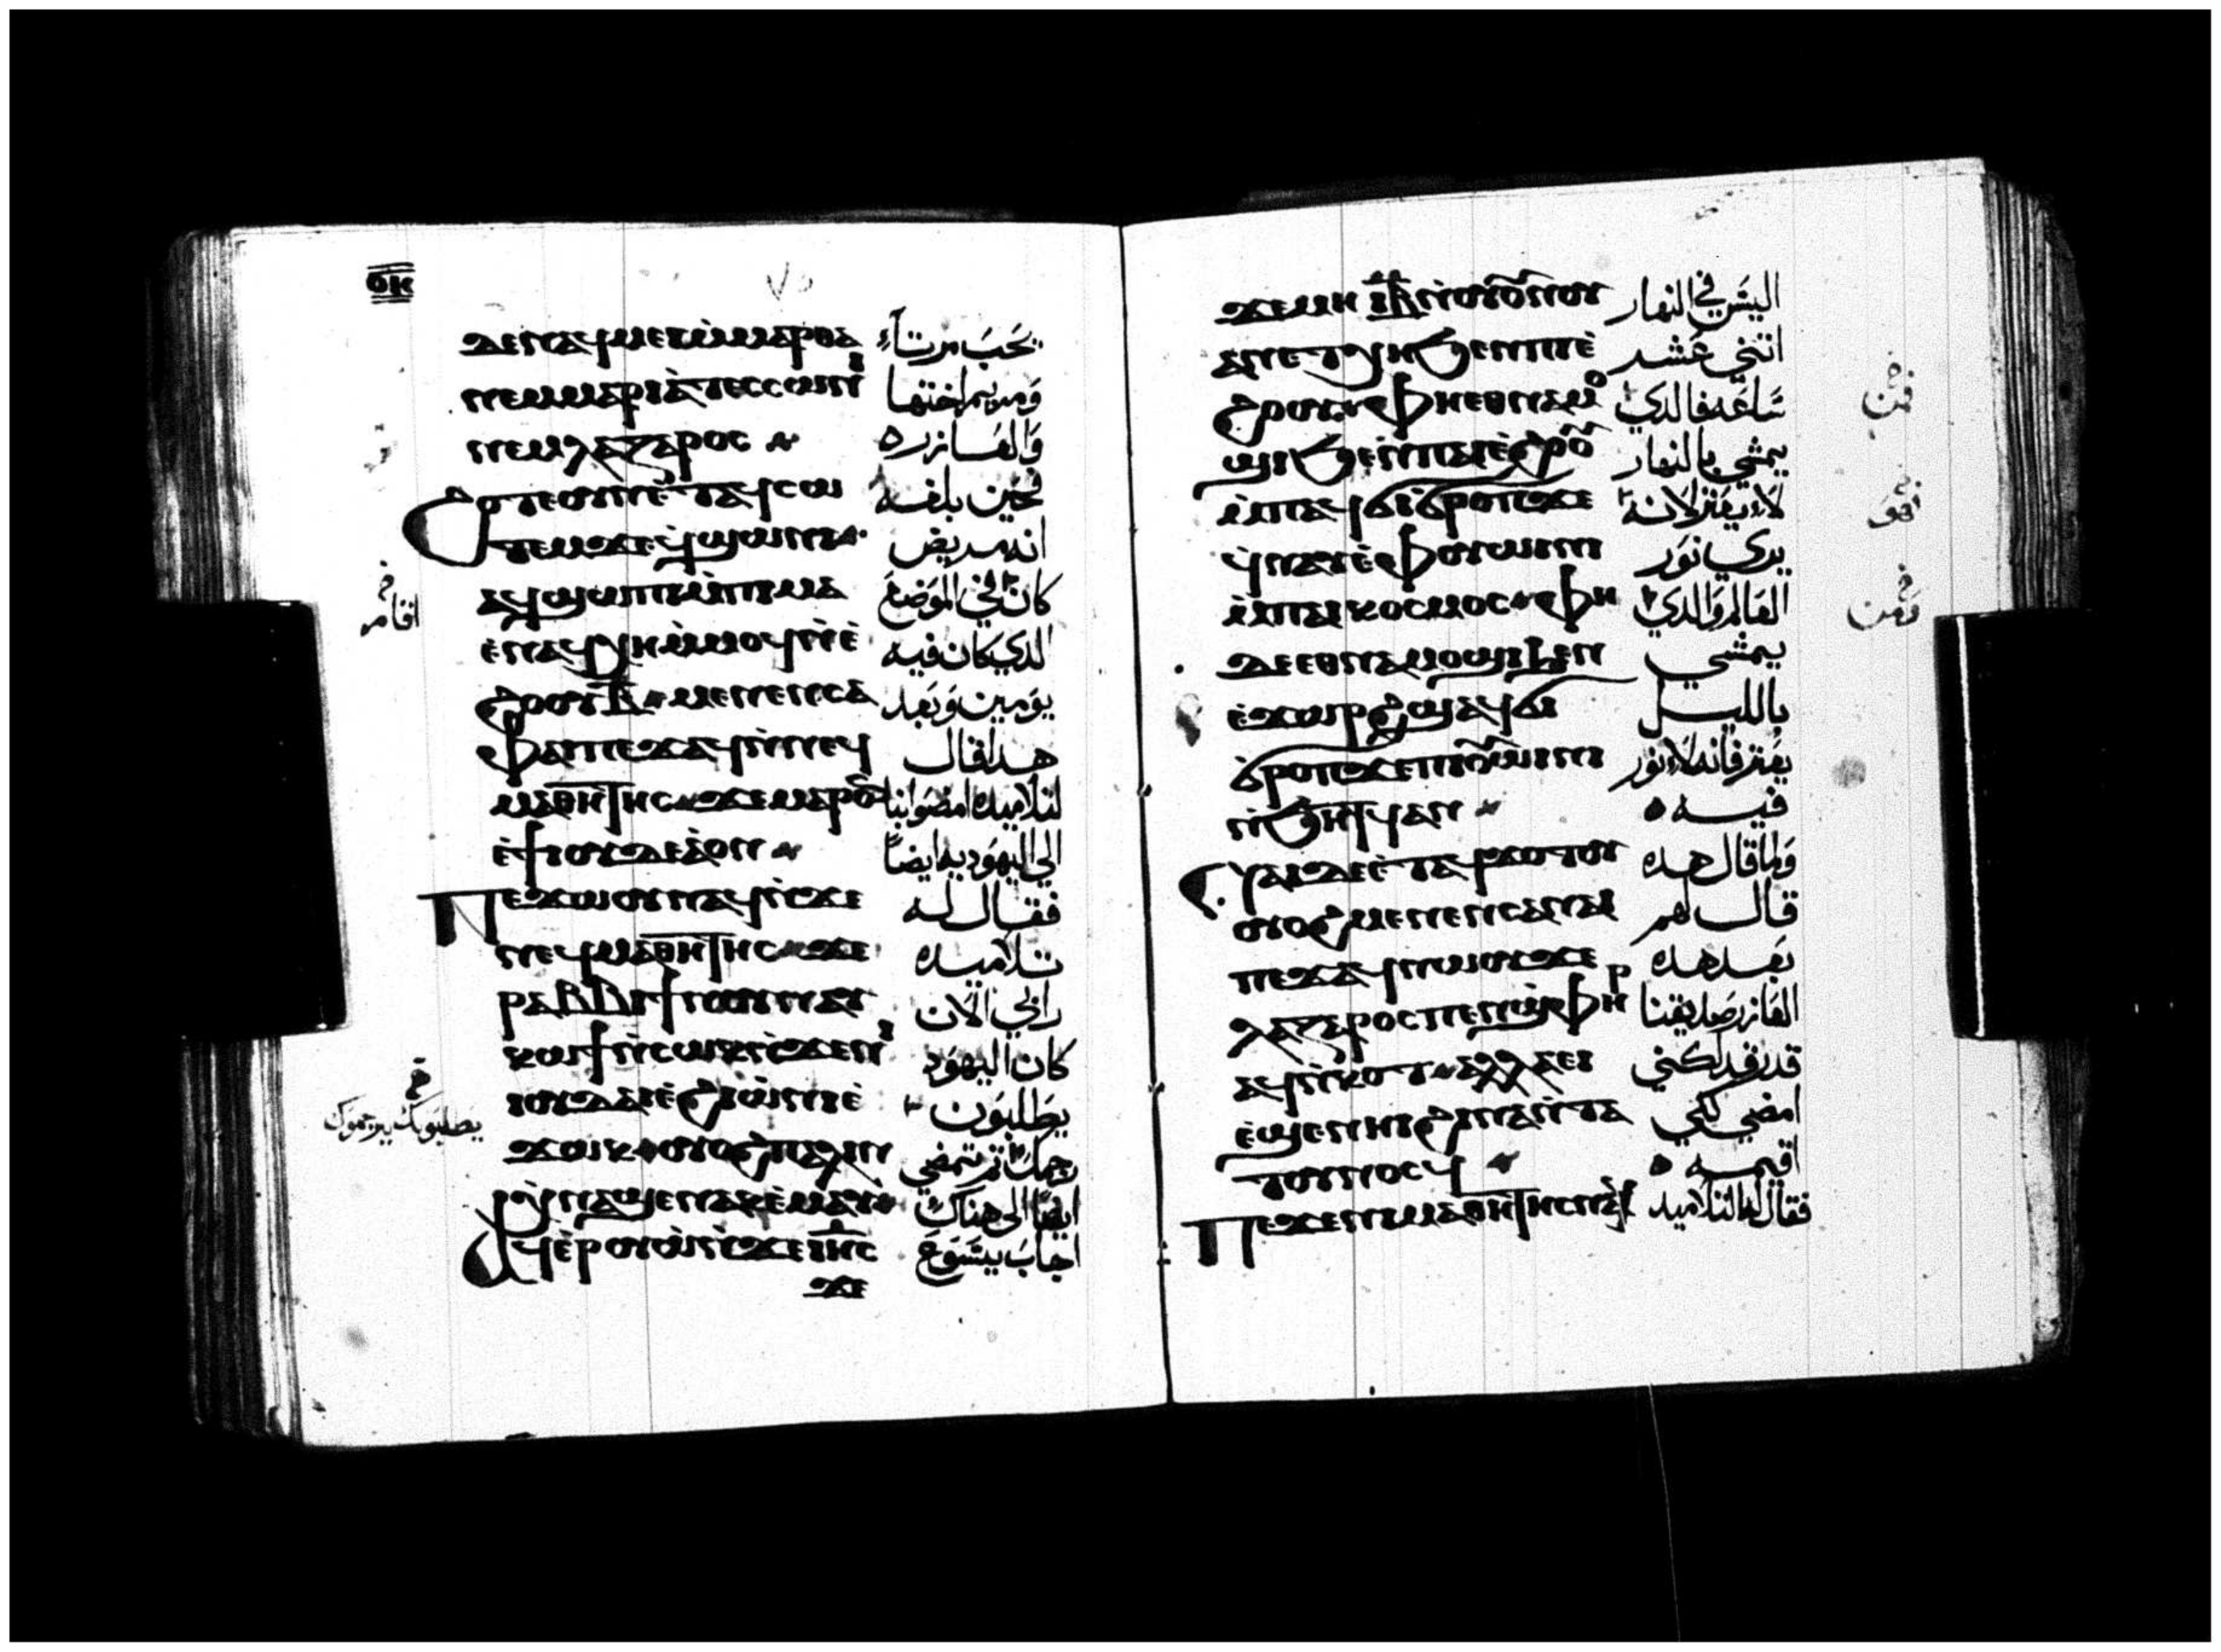 ⲟⲏ
ⲇⲉ ⲛⲁϥⲙⲉⲓ ⲙ̀ⲙⲁⲣⲑⲁ يحَبَ مرتاء
ⲛⲉⲙ ⲙⲁⲣⲓⲁ̀ ⲧⲉⲥⲥⲱⲛⲓ ومريم اختها
ⲛⲉⲙ ⲗⲁⲍⲁⲣⲟⲥ والعازره
ϩⲟⲧⲉ ⲟⲩⲛ ⲉ̀ⲧⲁϥⲥⲱ فحين بلغه
ⲧⲉⲙ ϫⲉ ϥ̀ϣⲱⲛⲓ انه مريض
ⲁϥϣⲱⲡⲓ ⲙ̀ⲡⲓⲙⲁ كان في الموضع
ⲉ̀ⲛⲁϥⲭⲏ ⲙ̀ⲙⲟϥ ⲛ̀ⲉ̀ الدي كان فيه
اقام
ϩⲟⲟⲩ ⲃ̅ ⲙⲉⲛⲉⲛⲥⲁ يومين وبعد
ⲫⲁⲓ ⲡⲉϫⲁϥ ⲛ̀ⲛⲉϥ هدا قال
ⲙⲁⲑⲏⲧⲏⲥ ϫⲉ ⲙⲁⲣⲟⲛ لتلاميده امضوا بنا
ⲉ̀ϯⲓⲟⲩⲇⲉⲁ̀ ⲟⲛ الي اليهوديه ايضاً
ⲡⲉϫⲱⲟⲩ ⲛⲁϥ ⲛ̀ϫⲉ فقال له
ⲛⲉϥⲙⲁⲑⲏⲧⲏⲥ ϫⲉ تلاميده
ⲣⲁⲃⲃⲓ ϯⲛⲟⲩ ⲛⲁⲩ رابي الان
ⲕⲱϯ ⲛ̀ⲥⲱⲕ ⲛ̀ϫⲉ ⲛⲓ كان اليهود
ⲓⲟⲩⲇⲁⲓ ⲉ̀ϩⲓⲱ̀ⲛⲓ ⲉ̀ يطلبون
يطلبوك ليرجموك
ϫⲱⲕ ⲟⲩⲟϩ ⲡⲁⲗⲓⲛ رجمك ثم تمضي
ⲭ̀ⲛⲁϣⲉⲛⲁⲕ ⲉ̀ⲙⲁⲩ ايضا الي هناك
ⲁϥⲉ̀ⲣⲟⲩⲱ̀ ⲛ̀ϫⲉ ⲓⲏⲥ اجاب يسوع
ϫⲉ
ϫⲉ ⲙⲏ ⲓⲃ̅ ⲛ̀ⲟⲩⲛⲟⲩ اليس في النهار
ⲁⲛ ⲉⲧⲭⲏ ϧⲉⲛ ⲡⲓⲉ̀ اثني عشر
ϩⲟⲟⲩ ⲫⲏ ⲉⲑⲛⲁⲙⲟ ساعه فالدي
فمن
ϣⲓ ϧⲉⲛ ⲡⲓⲉ̀ϩⲟⲟⲩ يمشي بالنهار
ⲙ̀ⲡⲁϥϭⲓϭⲣⲟⲡ ϫⲉ لا يعثر لانه
ϥ̀ⲛⲁⲩ ⲉ̀ⲫⲟⲩⲱⲓⲛⲓ يري نور
ⲙ̀ⲡⲁⲓⲕⲟⲥⲙⲟⲥ ⲫⲏ العالم والدي
ومن
ⲇⲉ ⲉⲑⲛⲁⲙⲟϣⲓ ϧⲉⲛ يمشي
ⲉ̀ϫⲱⲣϩ ϣⲁϥϭⲓ بالليل
ϭⲣⲟⲡ ϫⲉ ⲡⲓⲟⲩⲱⲓⲛⲓ يعثر فانه لا نور
ⲛ̀ϧⲏⲧϥ ⲁⲛ فيه
ⲛⲁⲓ ⲇⲉ ⲉ̀ⲧⲁϥϫⲟⲧⲟⲩ ولما قال هده
ⲟⲩⲟϩ ⲙⲉⲛⲉⲛⲥⲁ ⲛⲁⲓ قال لهم
ⲡⲉϫⲁϥ ⲛⲱⲟⲩ ϫⲉ بعد هده
ⲗⲁⲍⲁⲣⲟⲥ ⲡⲉⲛϣⲫⲏⲣ العازر صديقنا
ⲁϥⲛ̀ⲕⲟⲧ ⲁⲗⲗⲁ قد رقد لكني
ⲉ̀ϣⲉⲛⲏⲓ ϩⲓⲛⲁ ⲛ̀ⲧⲁ امضي لكي
ⲧⲟⲩⲛⲟⲥϥ اقيمه
ⲡⲉϫⲉ ⲛⲓⲙⲁⲑⲏⲧⲏⲥ ⲛⲁϥ فقال له التلاميد